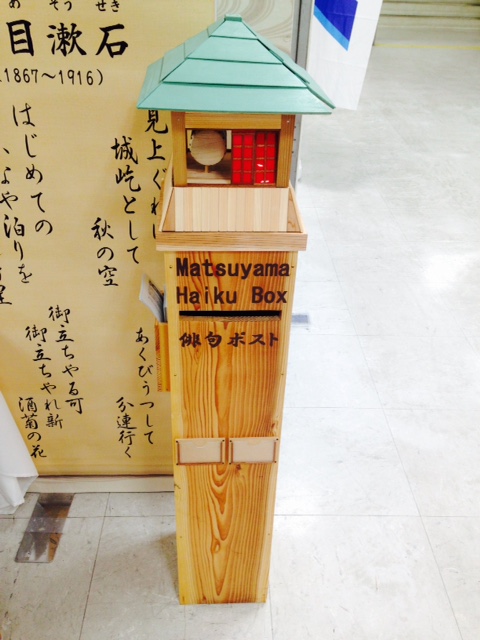 そう せき
目漱石
1867～1916)
見上ぐれ
城屹として
秋の空
はじめての
や泊りを
あくびうつして
分連行く
御立ちやる可
御立ちやれ新
酒菊の花
Matsuyama
Haiku Box
俳句ポスト